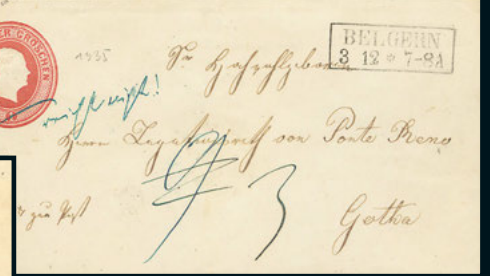 ER GROSCHEN
1935
BELGERN
3 12 * 7-8A
Sr Hochwohlgeboren
Herrn Legationsrath von Ponte Reno
3
zur Post
Gotha